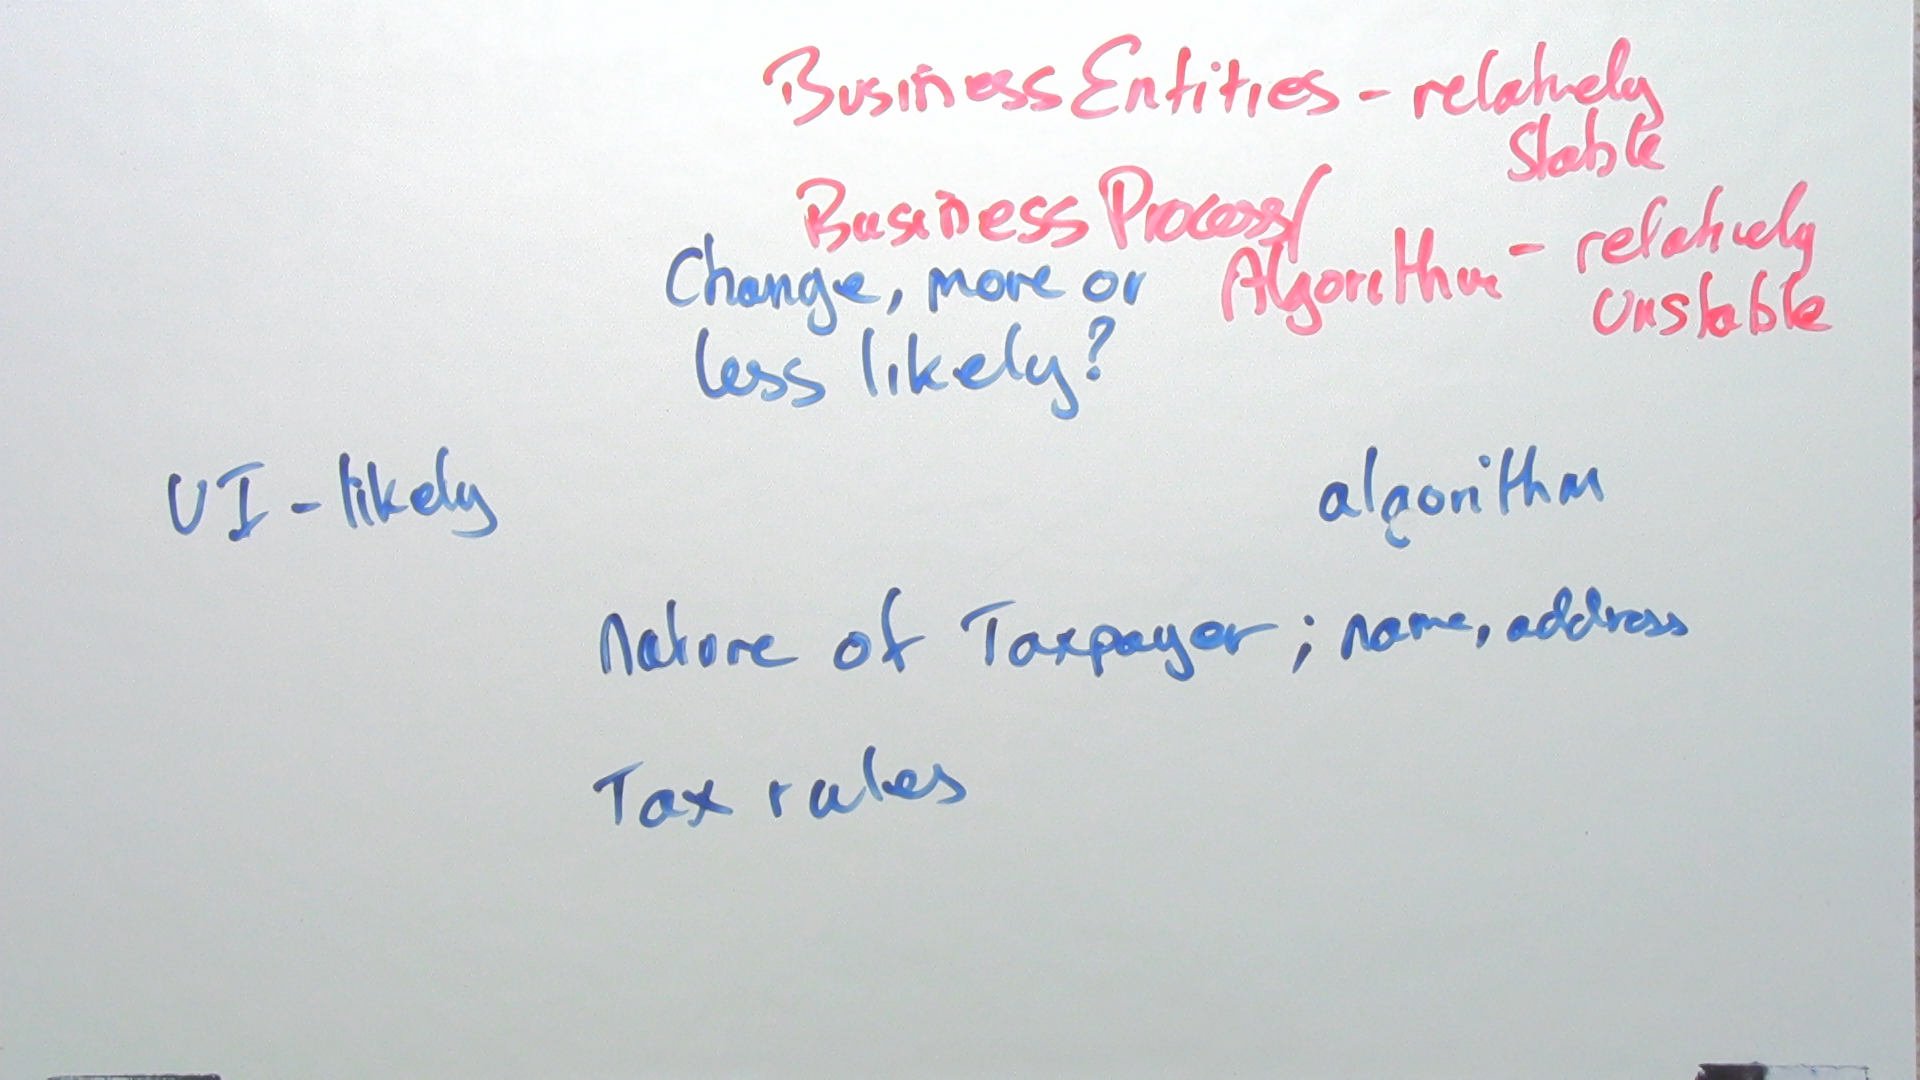 Business Entities - relatively
stable
Business Process/
Algorithm - relatively
unstable
Change, more or
less likely?
UI - likely
algorithm
Nature of Taxpayer; name, address
Tax rates